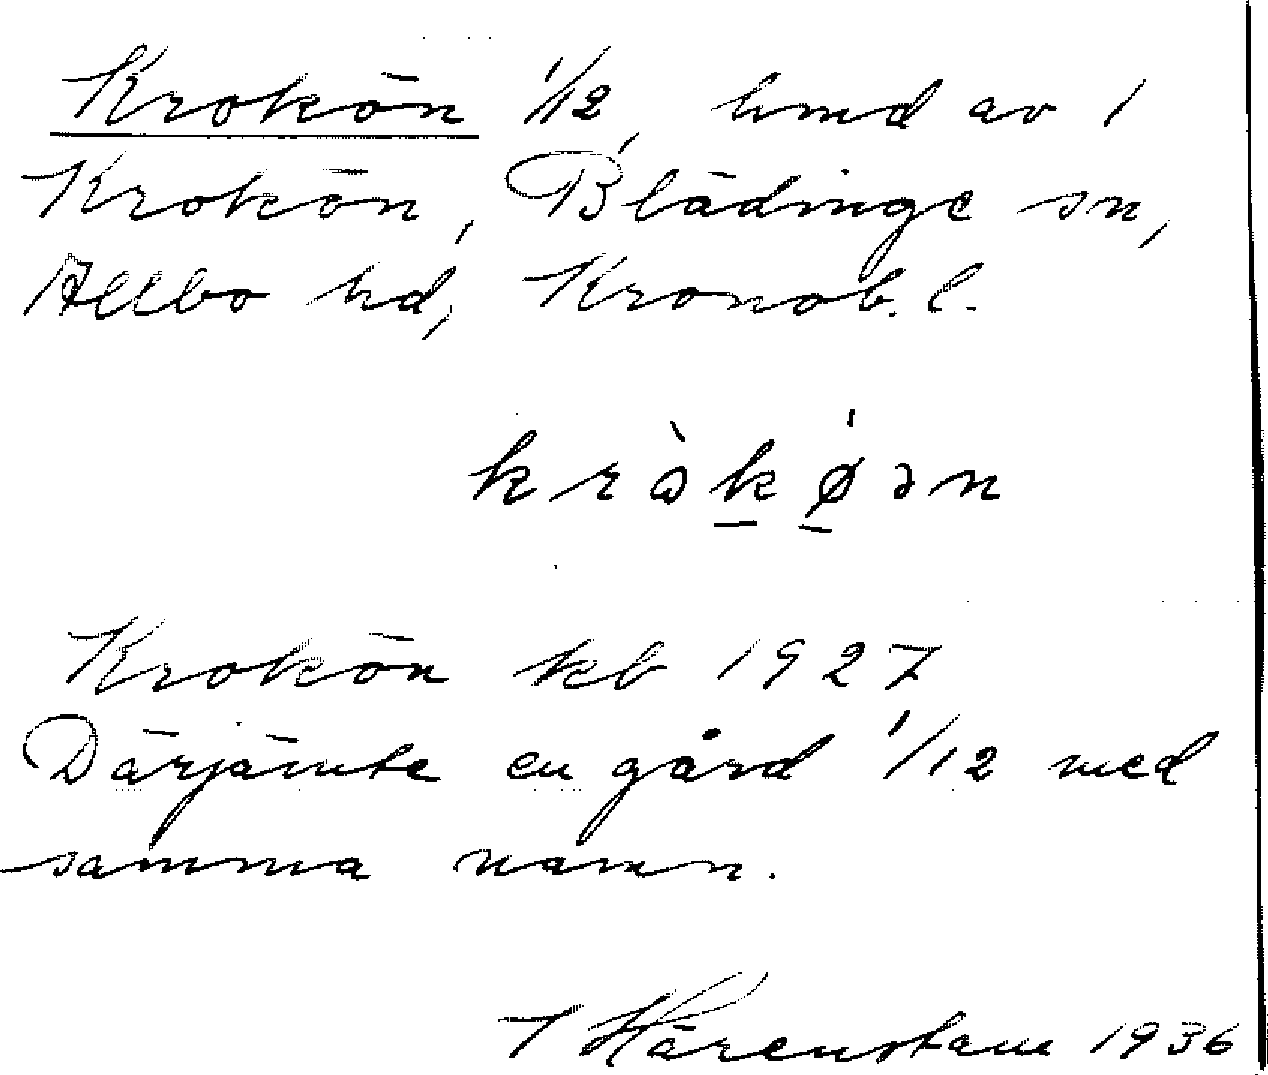 Krokön 1/12, hmd av 1
Krokön, Blädinge sn,
Allbo hd, Kronob. l.
kràkǿən
Krokön kb 1927
Därjämte en gård 1/12 med
samma namn.
T Härenstam 1936